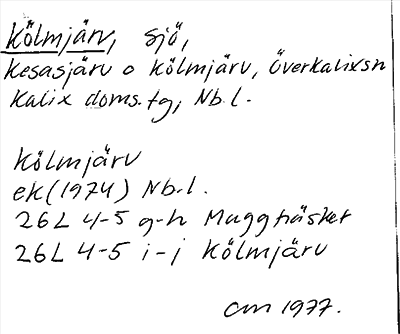 Kölmjärv, sjö,
Kesasjärv o Kölmjärv, Överkalixsn
Kalix doms.tg, Nb.l.
Kölmjärv
ek(1974) Nb.l.
26L 4-5 g-h Muggträsket
26L 4-5 i-j Kölmjärv
CM 1977.